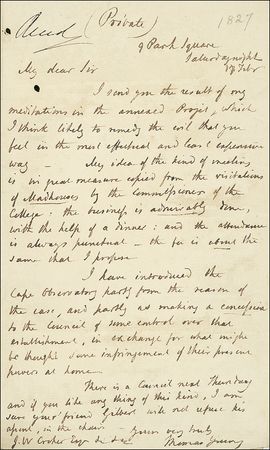 (Private)
1827
9 Park Square
Saturday night
17 Febr
My dear Sir
I send you the result of my
meditations in the annexed Projet, which
I think likely to remedy the evil that you
feel in the most effectual and least expensive
way — My idea of the kind of meeting
is in great measure copied from the visitations
of Madhouses by the Commissioners of the
College: the business is admirably done,
with the help of a dinner: and the attendance
is always punctual — the fee is about the
same that I propose
I have introduced the
Cape Observatory partly from the reason of
the case, and partly as making a concession
to the Council of some control over that
establishment, in exchange for what might
be thought some infringement of their present
powers at home.
There is a Council next Thursday
and if you like any thing of this kind, I am
sure your friend Gilbert will not refuse his
assent, in the chair —
yours very truly
J. W. Croker Esqr &c &c
Thomas Young